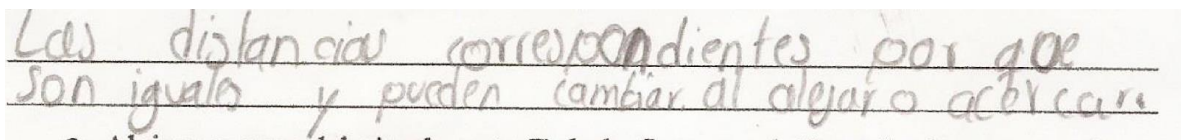 Las distancias correspondientes por que
son iguales y pueden cambiar al alejar o acercar.